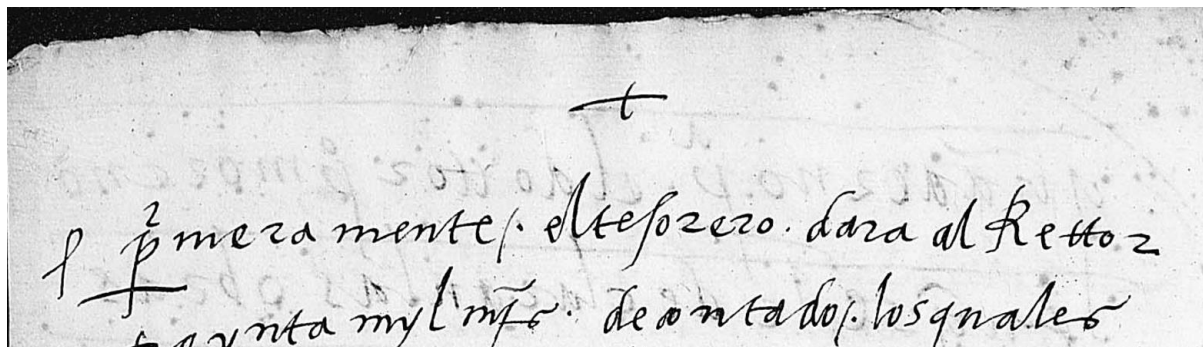 +
pͬmera mente /. el tesorero. dara al Rettor
traynta myl mrs. de contado /. los quales